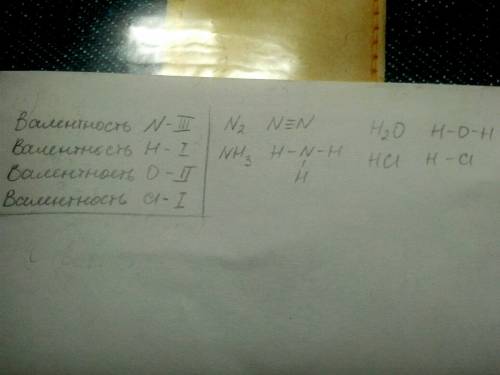 Валентность N-III
Валентность H-I
Валентность O-II
Валентность Cl-I
N2 N≡N
NH3 H-N-H
H
H2O H-O-H
HCl H-Cl